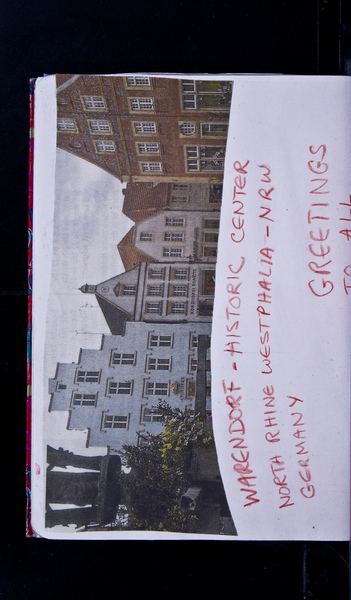 WARENDORF - HISTORIC CENTER
NORTH RHINE WESTPHALIA - NRW
GERMANY
GREETINGS
TO ALL